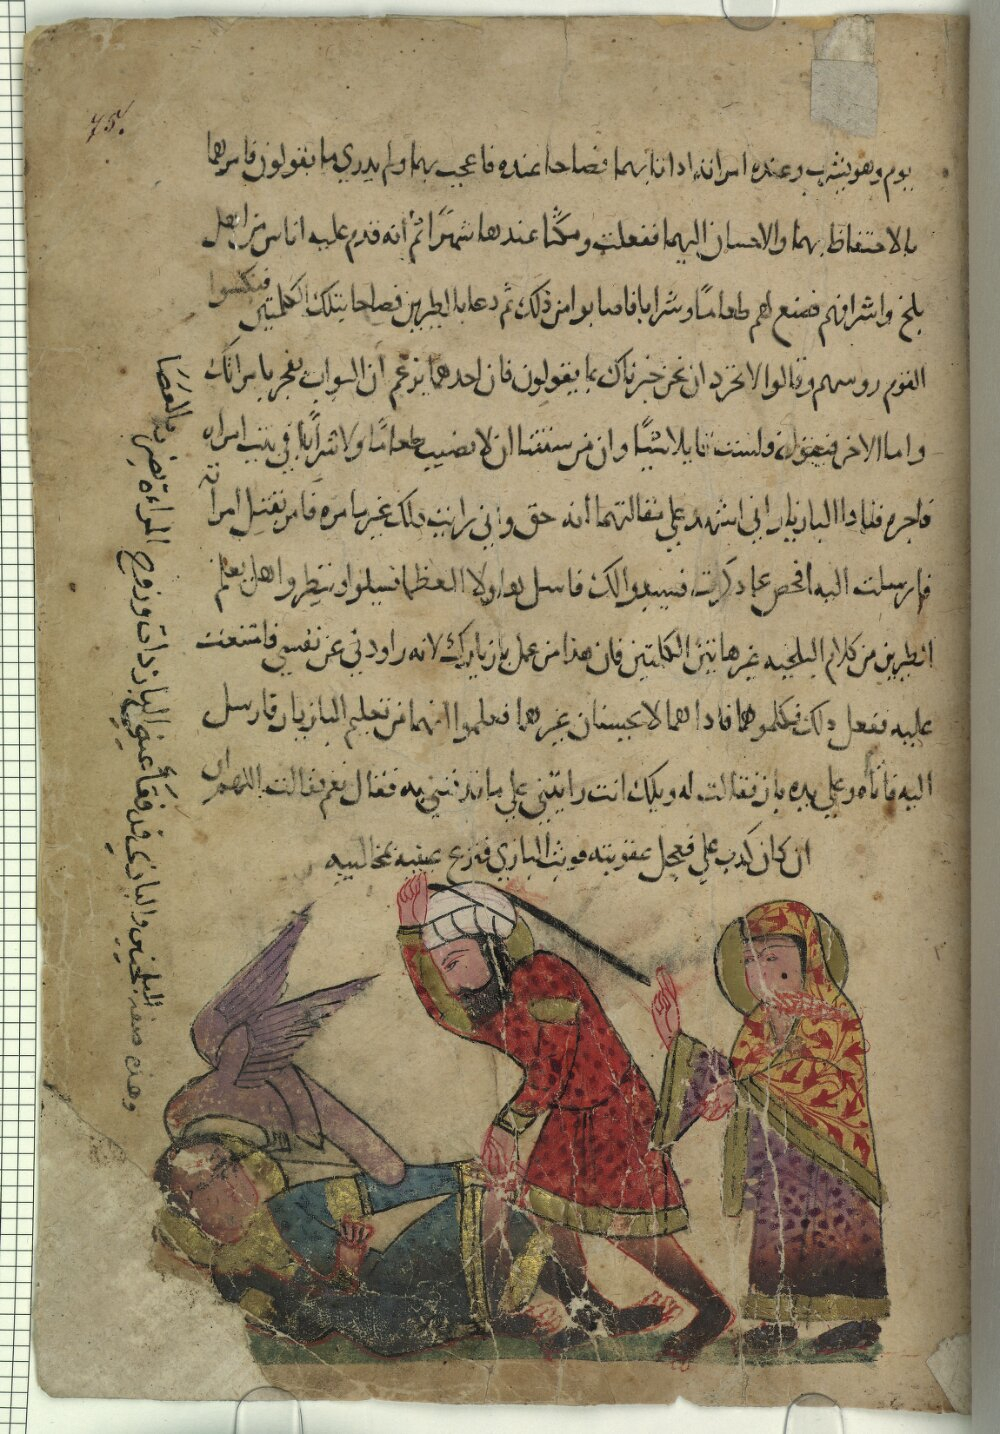 يوم وهو يشرب وعنده امرانه اذا اتا بهما فصاحا عنده فاعجب بهما ولم يدري ما يقولون فامرها
بالاحتفاظ بهما والاحسان اليهما ففعلت ومكثا عندها شهرًا ثم أنه قدم عليه اناس من اهل
بلخ واشرافهم فصنع لهم طعامًا وشرابا فاصابوا من ذلك ثم دعا بالطيرين فصاحا بتلك الكلمتين فنكسوا
القوم روسهم وقالوا لا نريد ان نحن خبرناك بما يقولون فان احدهما يزعم أن البواب يفجر بامراتك
واما الاخر فيقول ولست قايلا شيًا وان من سنتنا ان لا نصيب طعامًا ولا شرابًا في بيت امراه
فاجره فنادا البازيار اني اشهد علي مقالتهما أنه حق واني رايت ذلك غير ما مره فامر بقتل امراته
فارسلت اليه افحص عما ذكرت فسيبدوا لك فاسل هولاء العظما فسيلوا وينظروا هل يعلم
الطيرين من كلام البلخيه غير هاتين الكلمتين فان هذا من عمل بازيارك لانه راودني عن نفسي فامتنعت
عليه ففعل ذلك فكلموهما فاذا هما لا يحسنان غيرهما فعلموا انهما من تعليم البازيار فارسل
اليه فاتاه وعلي يده باز فقالت له ويلك انت رايتني علي ما قذفتني به فقال نعم فقالت اللهم ان
ان كان كذب علي فعجل عقوبته فوثب البازي فنزع عينيه بمخالبيه
وهذه صفه البلخيين والبازي قد فقأ عيني البازدار وزوج المراه يضربه بالعصا
75.